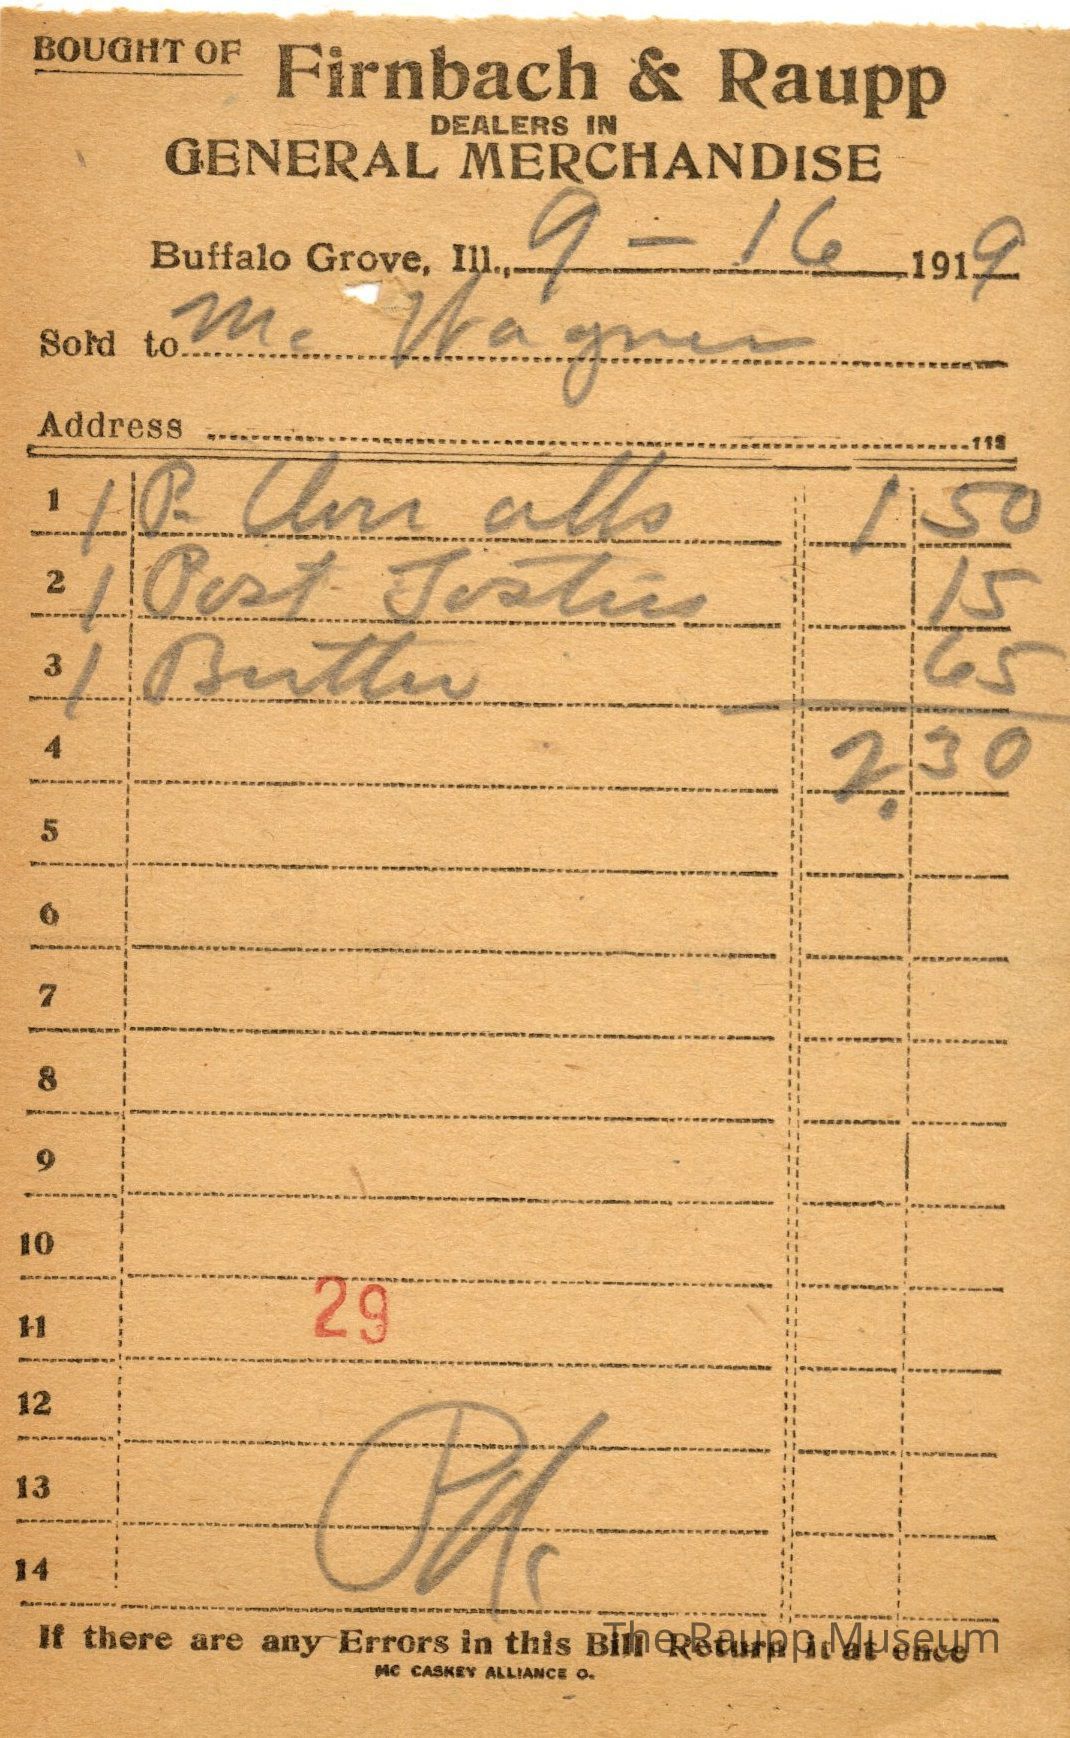 BOUGHT OF Firnbach & Raupp
DEALERS IN
GENERAL MERCHANDISE
Buffalo Grove, Ill., 9 - 16 1919
Sold to Mc Wagner
Address 113
1 1 P. Over alls 1 50
2 1 Post Tosties 15
3 1 Butter 65
4 2.30
5
6
7
8
9
10
11 29
12
13
14
If there are any Errors in this Bill Return it at once
The Raupp Museum
MC CASKEY ALLIANCE O.